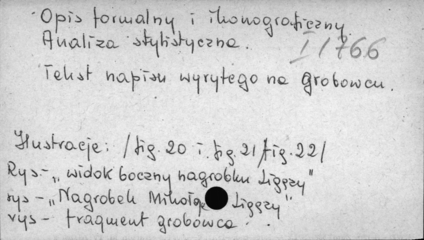 Opis formalny i ikonograficzny
Analiza stylistyczna. I/766
Tekst napisu wyrytego na grobowcu.
Ilustracje: /fig. 20 i fig. 21/fig. 22/
Rys-„widok boczny nagrobku Ligęzy"
rys-„Nagrobek Mikołaja Ligęzy"
rys- fragment grobowca.